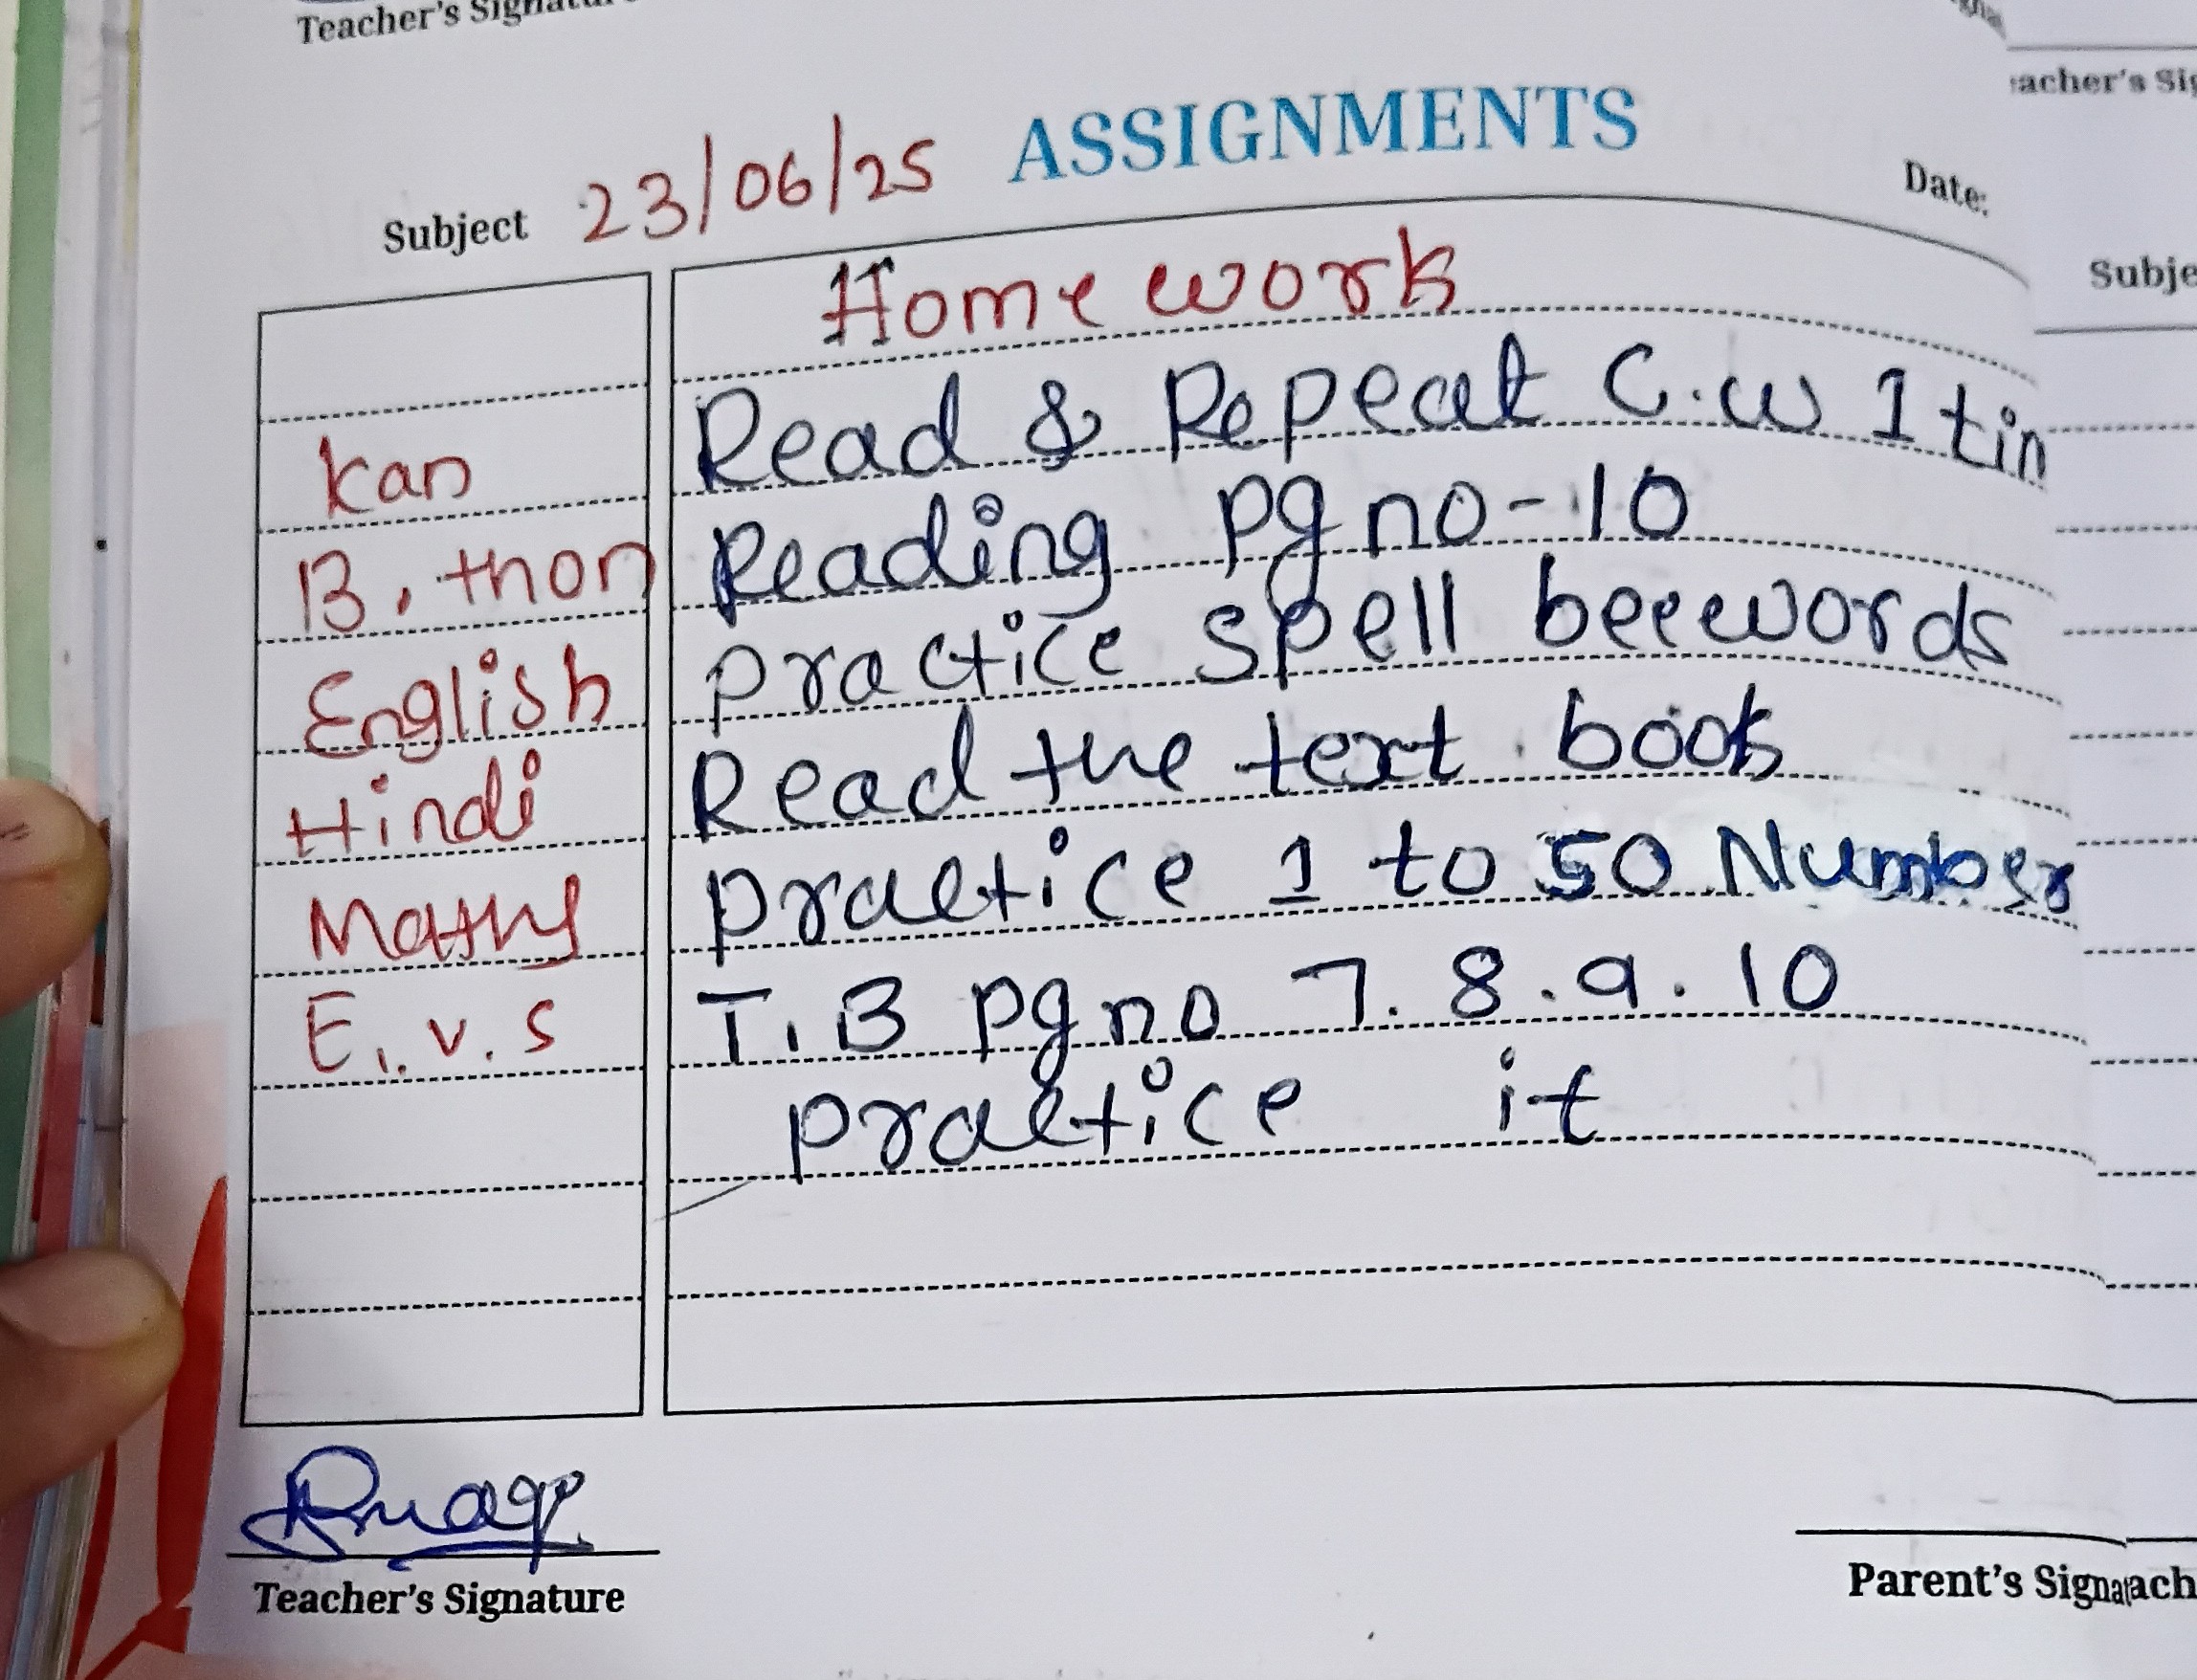 Teacher's Signature
acher's Sig
ASSIGNMENTS
Subject 23/06/25
Date:
Subje
Home work
kan Read & Repeat C.w 1 tim
B. thon Reading pg no-10
English practice spell bee words
Hindi Read the text book
Maths practice 1 to 50 Number
E.v.s T.B pg no 7. 8. 9. 10
practice it
Teacher's Signature
Parent's Signa
ach